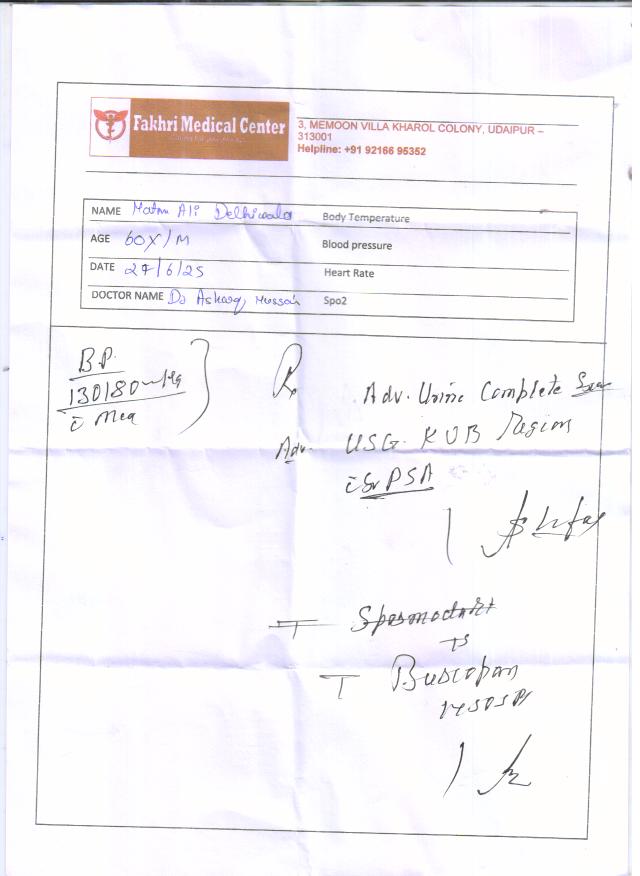 Fakhri Medical Center
3, MEMOON VILLA KHAROL COLONY, UDAIPUR –
313001
Helpline: +91 92216 95352
NAME Ali Delhiwala Body Temperature
AGE 60Y/M Blood pressure
DATE 27/6/25 Heart Rate
DOCTOR NAME Dr Hussain Spo2
B.P.
130/80 mmHg
c̄ Med
Rx
Adv. Urine Complete
Adv. USG. KUB Region
c̄ Sr PSA
T
T Buscopan